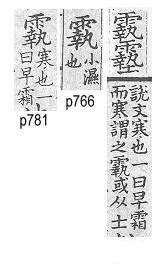 䨴
寒也一
曰早霜
p781
䨴
小濕
也
p766
䨴
說文寒也一曰早霜
而寒謂之䨴或从士